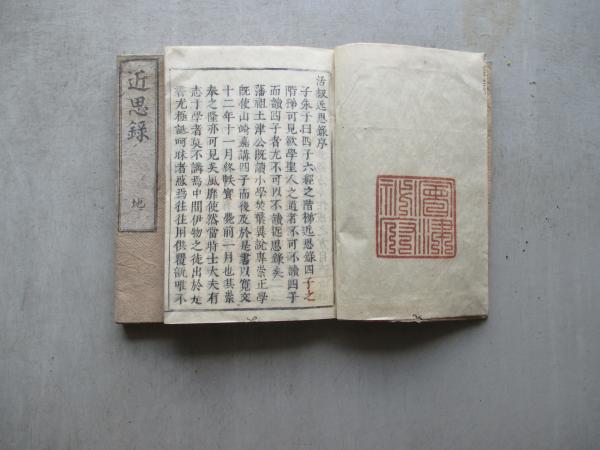 活板近思錄序
子朱子曰四子六經之階梯近思錄四子之
階梯可見欲學聖人之道者不可不讀四子
而讀四子者尤不可以不讀近思錄矣
藩祖土津公既讀小學焚葉異說專崇正學
既使山崎嘉講四子而後及於是書以寛文
十二年十一月終帙實薨前一月也其崇
奉之隆亦可見矣風靡使然當時士大夫有
志于學者莫不講焉中間伊物之徒出於是
書尤極詆呵昧者惑焉往往用供覆瓿唯不
近思錄
地